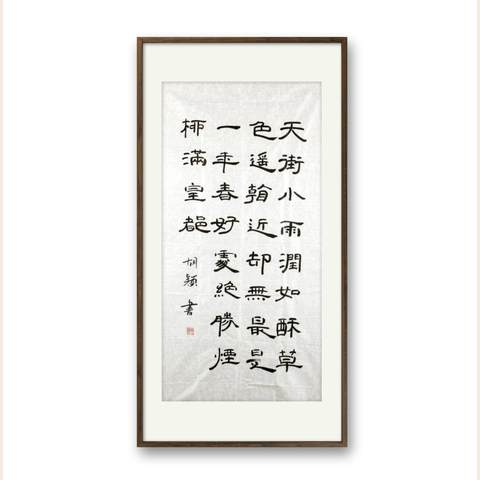 天街小雨潤如酥草
色遥看近却無最是
一年春好處絶勝煙
柳滿皇都
胡穎書